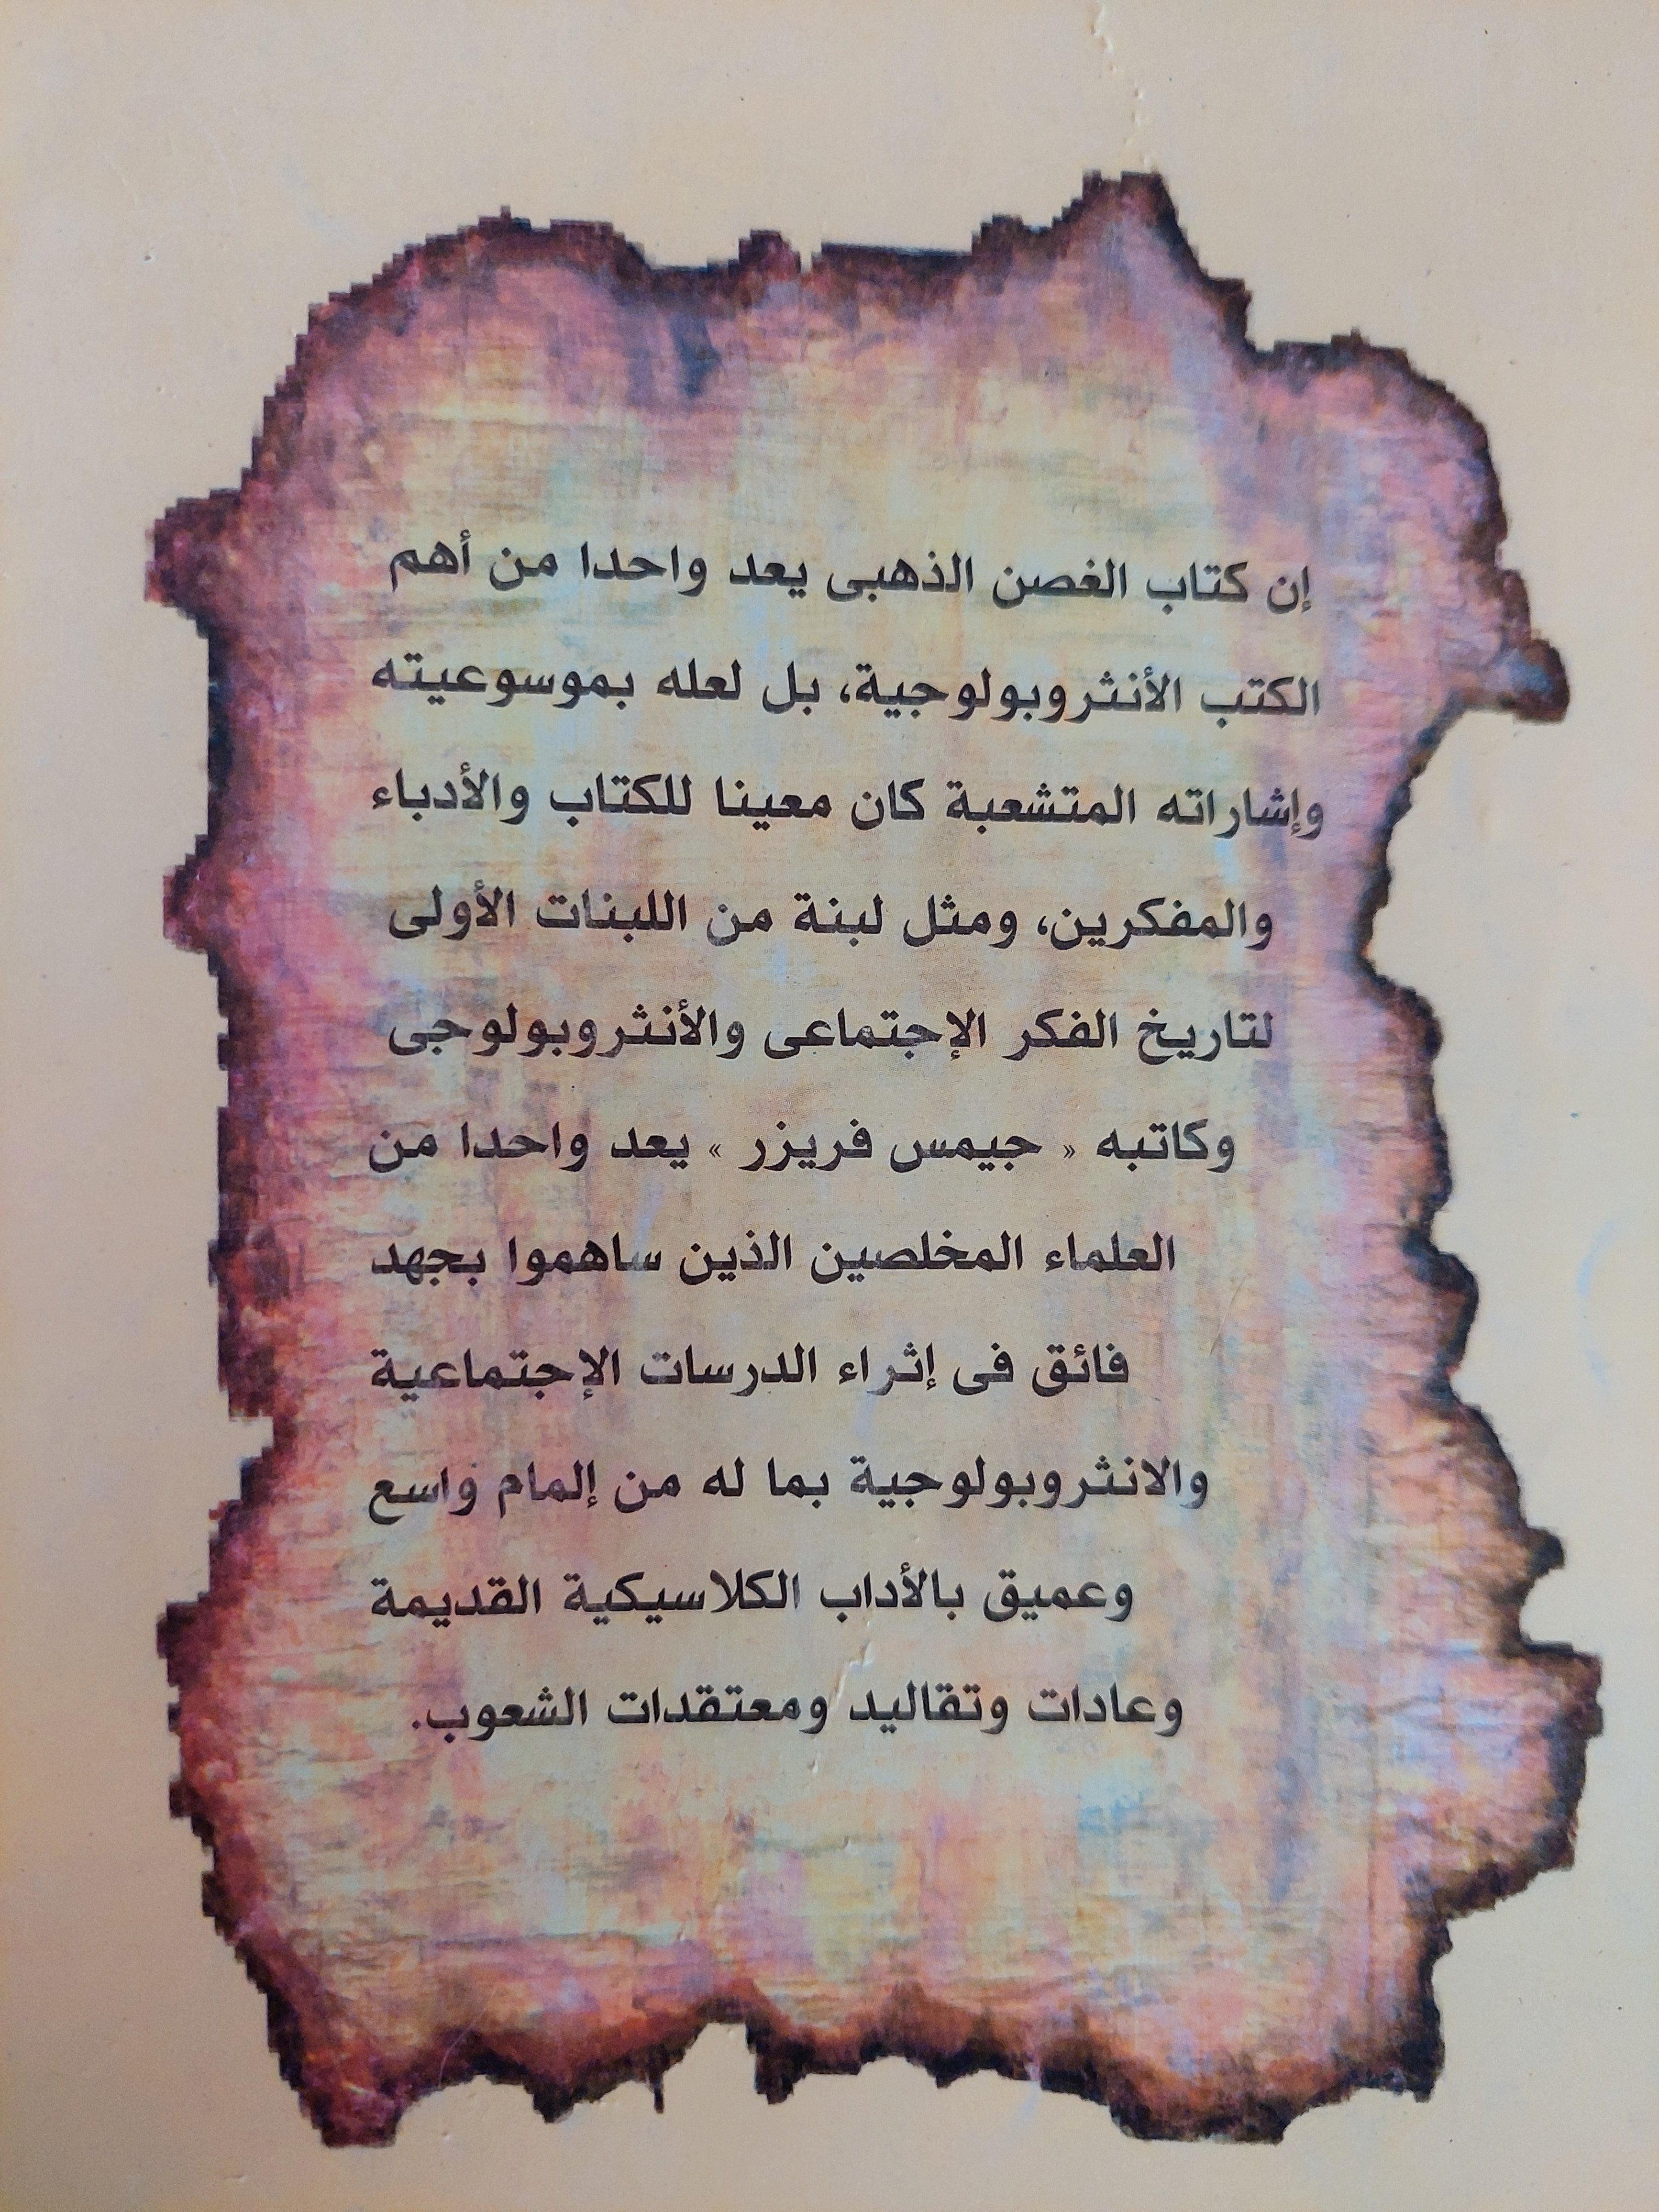 إن كتاب الغصن الذهبى يعد واحدا من أهم
الكتب الأنثروبولوجية، بل لعله بموسوعيته
وإشاراته المتشعبة كان معينا للكتاب والأدباء
والمفكرين، ومثل لبنة من اللبنات الأولى
لتاريخ الفكر الإجتماعى والأنثروبولوجى
وكاتبه « جيمس فريزر » يعد واحدا من
العلماء المخلصين الذين ساهموا بجهد
فائق فى إثراء الدرسات الإجتماعية
والانثروبولوجية بما له من إلمام واسع
وعميق بالأداب الكلاسيكية القديمة
وعادات وتقاليد ومعتقدات الشعوب.